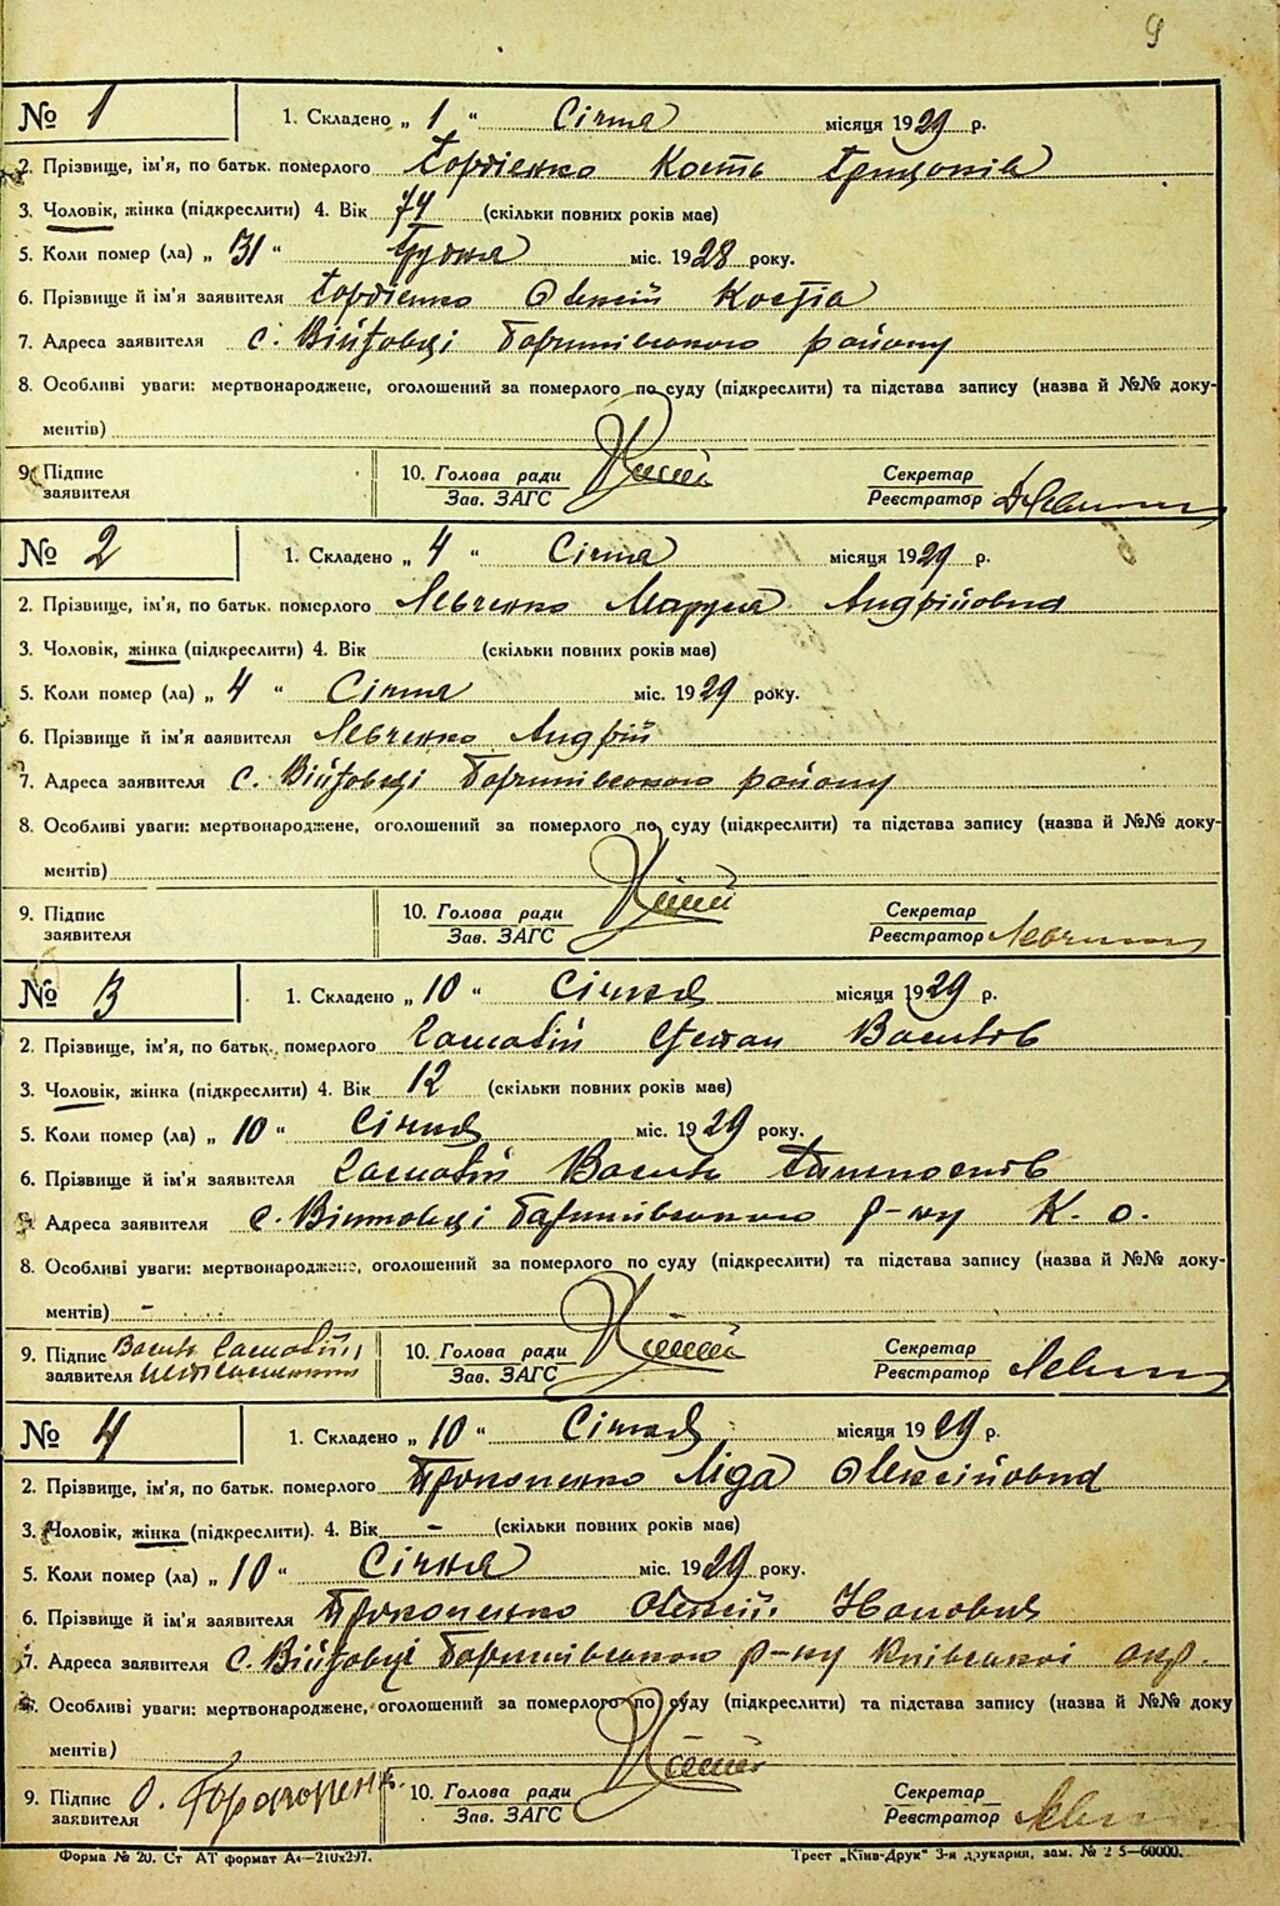 9
№ 1 1. Складено „ 1 “ Січня місяця 1929 р.
2. Прізвище, ім'я, по батьк. померлого Гордієнко Кость Грицьків
3. Чоловік, жінка (підкреслити) 4. Вік 74 (скільки повних років має)
5. Коли помер (ла) „ 31 “ Грудня міс. 1928 року.
6. Прізвище й ім'я заявителя Гордієнко Олексій Костів
7. Адреса заявителя с. Війтовці Баришівського району
8. Особливі уваги: мертвонароджене, оголошений за померлого по суду (підкреслити) та підстава запису (назва й №№ доку-
ментів)
9. Підпис заявителя 10. Голова ради Зав. ЗАГС Секретар Реєстратор
№ 2 1. Складено „ 4 “ Січня місяця 1929 р.
2. Прізвище, ім'я, по батьк. померлого Левченко Маруся Андрійовна
3. Чоловік, жінка (підкреслити) 4. Вік (скільки повних років має)
5. Коли помер (ла) „ 4 “ Січня міс. 1929 року.
6. Прізвище й ім'я заявителя Левченко Андрій
7. Адреса заявителя с. Війтовці Баришівського району
8. Особливі уваги: мертвонароджене, оголошений за померлого по суду (підкреслити) та підстава запису (назва й №№ доку-
ментів)
9. Підпис заявителя 10. Голова ради Зав. ЗАГС Секретар Реєстратор
№ 3 1. Складено „ 10 “ Січня місяця 1929 р.
2. Прізвище, ім'я, по батьк. померлого Степан Васильів
3. Чоловік, жінка (підкреслити) 4. Вік 12 (скільки повних років має)
5. Коли помер (ла) „ 10 “ Січня міс. 1929 року.
6. Прізвище й ім'я заявителя Василь
7. Адреса заявителя с. Війтовці Баришівського р-ну К. о.
8. Особливі уваги: мертвонароджене, оголошений за померлого по суду (підкреслити) та підстава запису (назва й №№ доку-
ментів) -
9. Підпис заявителя Василь 10. Голова ради Зав. ЗАГС Секретар Реєстратор
№ 4 1. Складено „ 10 “ Січня місяця 1929 р.
2. Прізвище, ім'я, по батьк. померлого Прокопенко Ліда Олексійовна
3. Чоловік, жінка (підкреслити). 4. Вік - (скільки повних років має)
5. Коли помер (ла) „ 10 “ Січня міс. 1929 року.
6. Прізвище й ім'я заявителя Прокопенко Олексій
7. Адреса заявителя с. Війтовці Баришівського р-ну Київської окр.
8. Особливі уваги: мертвонароджене, оголошений за померлого по суду (підкреслити) та підстава запису (назва й №№ доку
ментів)
9. Підпис заявителя О. Прокопенк. 10. Голова ради Зав. ЗАГС Секретар Реєстратор
Форма № 20. Ст АТ формат А4—210х297. Трест „Київ-Друк“ 3-я друкарня, зам. №